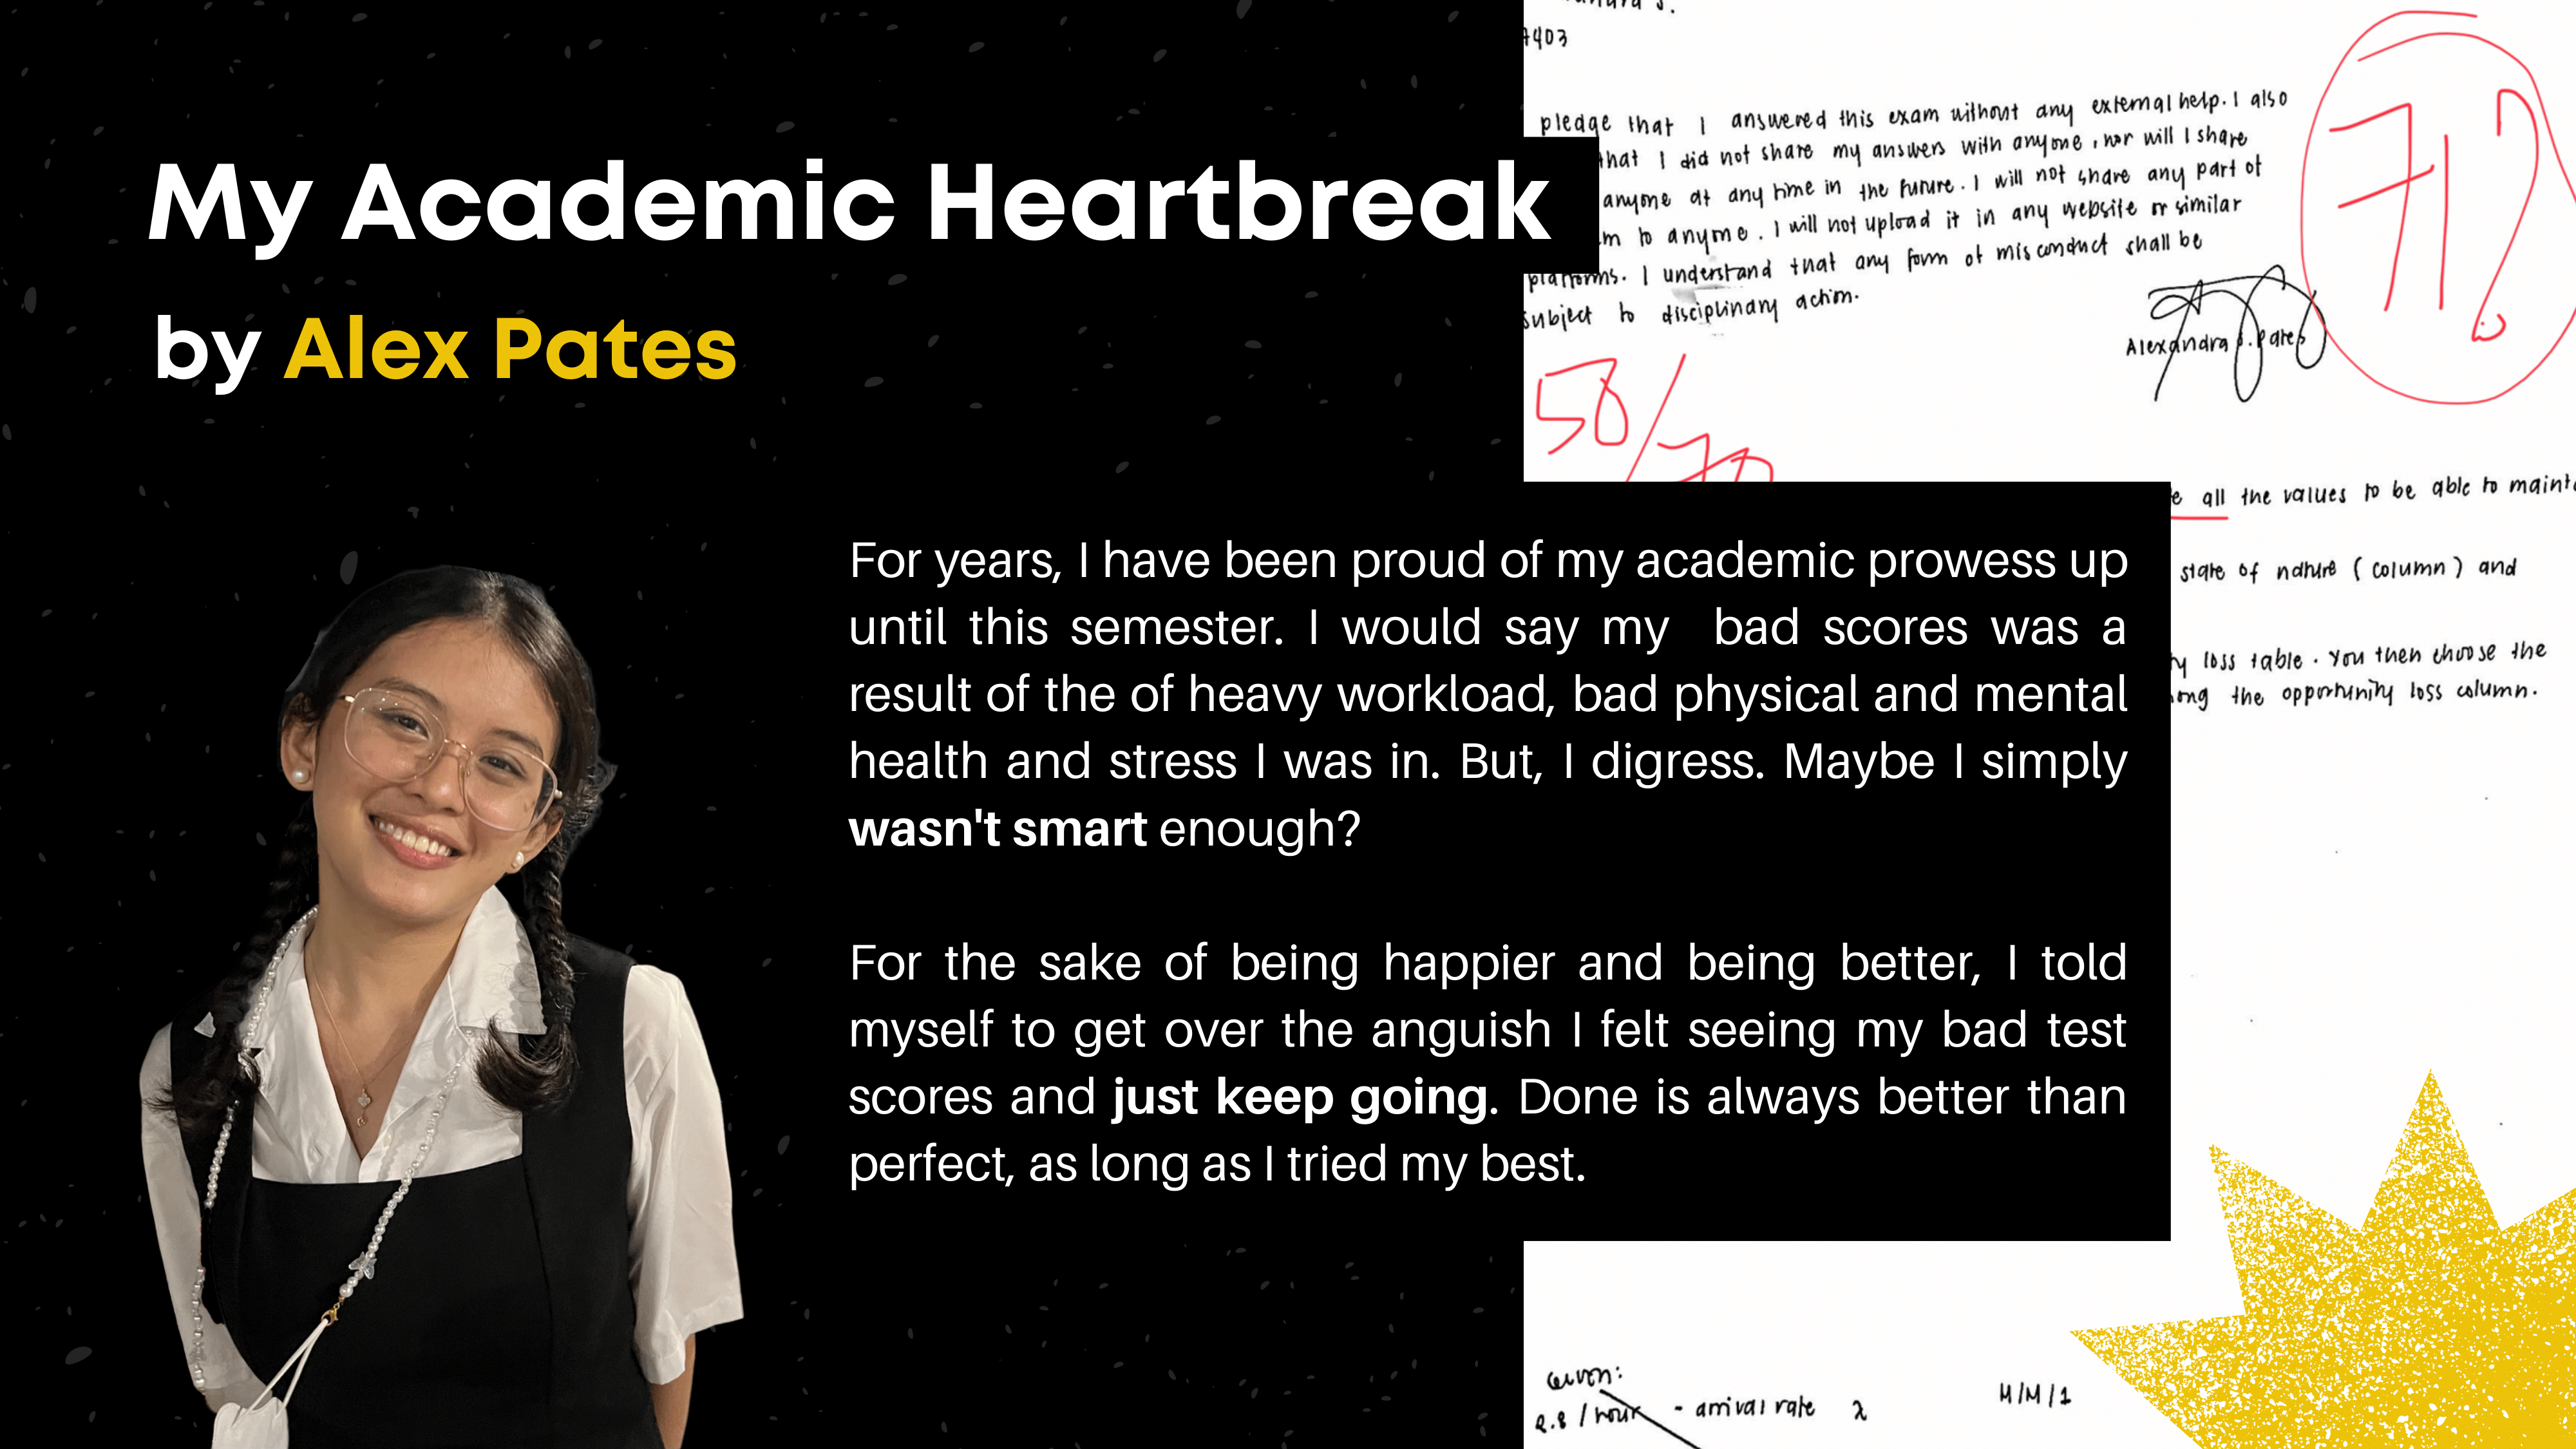 My Academic Heartbreak
by Alex Pates
For years, I have been proud of my academic prowess up
until this semester. I would say my bad scores was a
result of the of heavy workload, bad physical and mental
health and stress I was in. But, I digress. Maybe I simply
wasn't smart enough?
For the sake of being happier and being better, I told
myself to get over the anguish I felt seeing my bad test
scores and just keep going. Done is always better than
perfect, as long as I tried my best.
7403
pledge that I answered this exam without any external help. I also
that I did not share my answers with anyone, nor will I share
anyone at any time in the future. I will not share any part of
to anyone. I will not upload it in any website or similar
platforms. I understand that any form of misconduct shall be
subject to disciplinary action.
Alexandra S. Pates
71?
58/70
all the values to be able to
state of nature (column) and
loss table. You then choose the
the opportunity loss column.
Given:
2.8 / hour - arrival rate λ
M/M/1